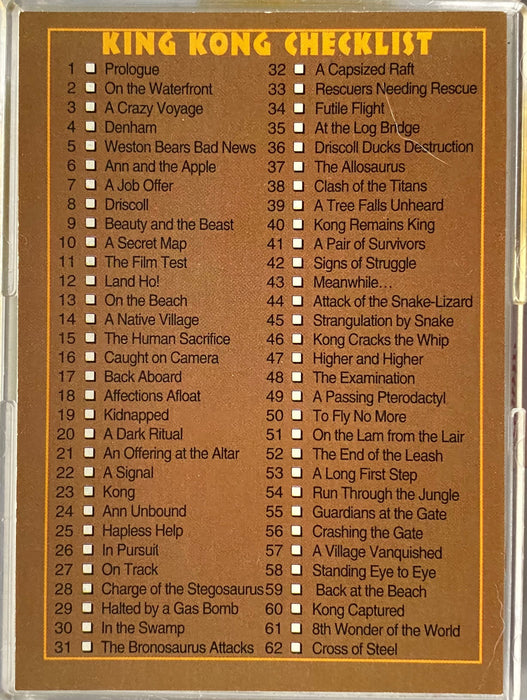 KING KONG CHECKLIST
1 Prologue
2 On the Waterfront
3 A Crazy Voyage
4 Denham
5 Weston Bears Bad News
6 Ann and the Apple
7 A Job Offer
8 Driscoll
9 Beauty and the Beast
10 A Secret Map
11 The Film Test
12 Land Ho!
13 On the Beach
14 A Native Village
15 The Human Sacrifice
16 Caught on Camera
17 Back Aboard
18 Affections Afloat
19 Kidnapped
20 A Dark Ritual
21 An Offering at the Altar
22 A Signal
23 Kong
24 Ann Unbound
25 Hapless Help
26 In Pursuit
27 On Track
28 Charge of the Stegosaurus
29 Halted by a Gas Bomb
30 In the Swamp
31 The Bronosaurus Attacks
32 A Capsized Raft
33 Rescuers Needing Rescue
34 Futile Flight
35 At the Log Bridge
36 Driscoll Ducks Destruction
37 The Allosaurus
38 Clash of the Titans
39 A Tree Falls Unheard
40 Kong Remains King
41 A Pair of Survivors
42 Signs of Struggle
43 Meanwhile...
44 Attack of the Snake-Lizard
45 Strangulation by Snake
46 Kong Cracks the Whip
47 Higher and Higher
48 The Examination
49 A Passing Pterodactyl
50 To Fly No More
51 On the Lam from the Lair
52 The End of the Leash
53 A Long First Step
54 Run Through the Jungle
55 Guardians at the Gate
56 Crashing the Gate
57 A Village Vanquished
58 Standing Eye to Eye
59 Back at the Beach
60 Kong Captured
61 8th Wonder of the World
62 Cross of Steel